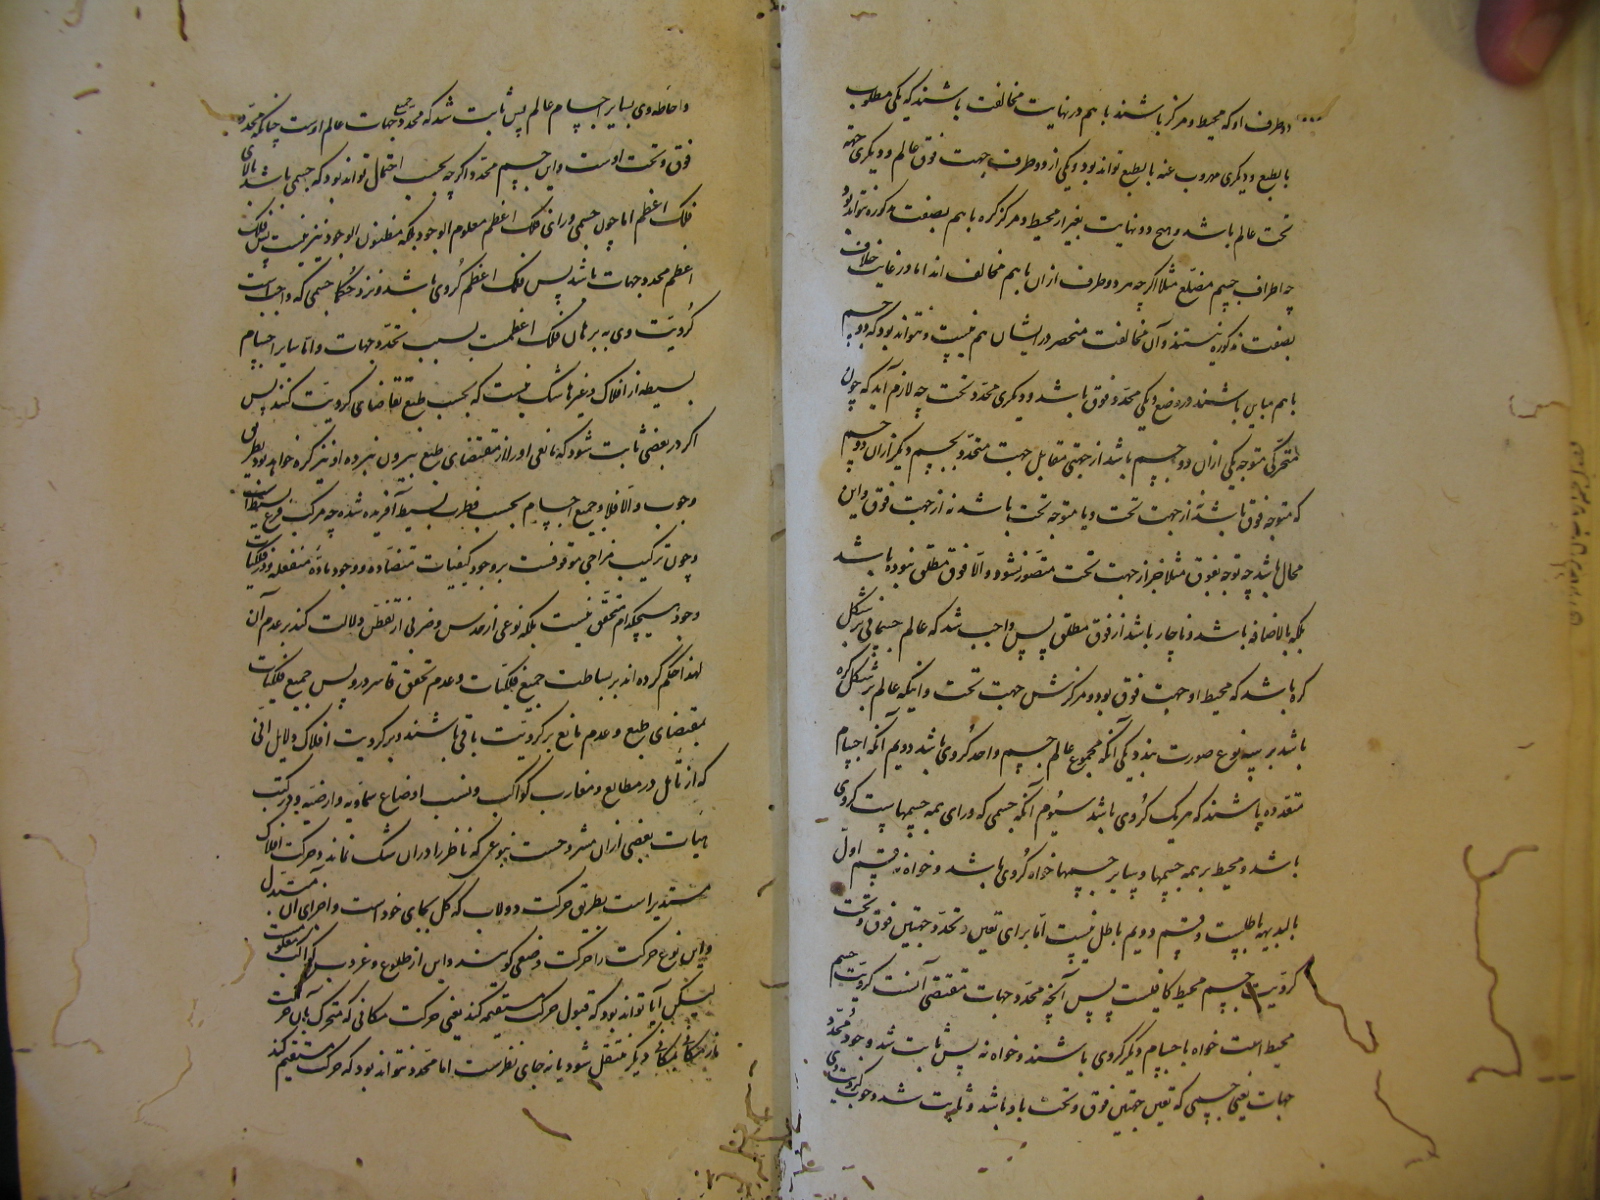 دو طرف او که محیط و مرکز باشند با هم در نهایت مخالفت باشند که یکی مطلوب
بالطبع و دیگری مهروب عنه بالطبع تواند بود و یکی از دو طرف جهت فوق عالم و دیگری جهة
تحت عالم باشد و هیچ دو نهایت بغیر از محیط و مرکز کره با هم بصفت مذکوره نتواند بود
چه اطراف جسم مضلع مثلا اگرچه هر دو طرف ازان با هم مخالف اند اما در غایت خلاف
بصفت مذکوره نیستند و آن مخالفت منحصر در ایشان هم نیست و نتواند بود که دو جسم
با هم مباین باشند در وضع و یکی محدد فوق باشد و دیگری محدد تحت چه لازم آید که چون
متحرکی متوجه یکی ازان دو جسم باشد از جهتی مقابل جهت متحدد بجسم دیگر ازان دو جسم
که متوجه فوق باشد نه از جهت تحت و یا متوجه تحت باشد نه از جهت فوق و این
محال باشد چه توجه بفوق مثلا جز از جهت تحت متصور نشود و الا فوق مطلق نبوده باشد
بلکه بالاضافه باشد و ناچار باشد از فوق مطلق پس واجب شد که عالم جسمانی بر شکل
کره باشد که محیط او جهت فوق بود و مرکزش جهت تحت و اینکه عالم بر شکل کره
باشد بر سه نوع صورت بندد یکی آنکه مجموع عالم جسم واحد کروی باشد دویم آنکه اجسام
متعدده باشند که هر یک کروی باشد سیوم آنکه جسمی که ورای همه جسمهاست کروی
باشد و محیط بر همه جسمها و سایر جسمها خواه کروی باشد و خواه نه قسم اول
بالبدیهه باطلست و قسم دویم باطل نیست اما برای تعین و تحدد جهتین فوق و تحت
کرویت جسم محیط کافیست پس آنچه محدد جهات مقتضی آنست کرویت جسم
محیط است خواه با جسام دیگر کروی باشند و خواه نه پس ثابت شد وجود محدد
جهات یعنی جسمی که تعین جهتین فوق و تحت باو باشد و ثابت شد وجوب کرویت وی
واحاطه وی بسایر اجسام عالم پس ثابت شد که محدد جمیع جهات عالم اوست چنانکه محدد
فوق و تحت اوست و این جسم محدد اگرچه بحسب احتمال تواند بود که جسمی باشد بالای
فلک اعظم اما چون جسمی ورای فلک اعظم معلوم الوجود بلکه مظنون الوجود نیز نیست پس فلک
اعظم محدد جهات باشد پس فلک اعظم کروی باشد و نزد حکما جسمی که واجب است
کرویت وی به برهان فلک اعظمست بسبب تحدد جهات و اما سایر اجسام
بسیطه از افلاک و غیرها شک نیست که بحسب طبع تقاضای کرویت کنند پس
اگر در بعضی ثابت شود که مانعی اورا از مقتضای طبع بیرون نبرده او نیز کره خواهد بود بطریق
وجوب و الا فلا و جمیع اجسام بحسب فطرت بسیط آفریده شده چه مرکب فرع بسیط است
و چون ترکیب مزاجی موقوفست بر وجود کیفیات متضاده و وجود ماده منفعله و در فلکیات
وجود هیچکدام متحقق نیست بلکه نوعی از حدس و ضربی از تفطن دلالت کند بر عدم آن
لهذا حکم کرده اند بر بساطت جمیع فلکیات و عدم تحقق قاسر در و پس جمیع فلکیات
بمقتضای طبع و عدم مانع بر کرویت باقی باشند و بر کرویت افلاک دلایل انی
که از تأمل در مطالع و مغارب کواکب و نسب اوضاع سماویه و ارضیه و در کتب
هیأت بعضی ازان مشروحست بنوعی که ناظر را دران شک نماند و حرکت افلاک
مستدیر است بطریق حرکت دولاب که کل بجای خود است و اجزای آن متبدل
و این نوع حرکت را حرکت وضعی گویند و این از طلوع و غروب کواکب معلومست
لیکن آیا تواند بود که قبول حرکت مستقیمه کند یعنی حرکت مکانی که متحرک بآن حرکت
از مکانی بمکانی دیگر منتقل شود یا نه جای نظرست اما محدد نتواند بود که حرکت مستقیم کند